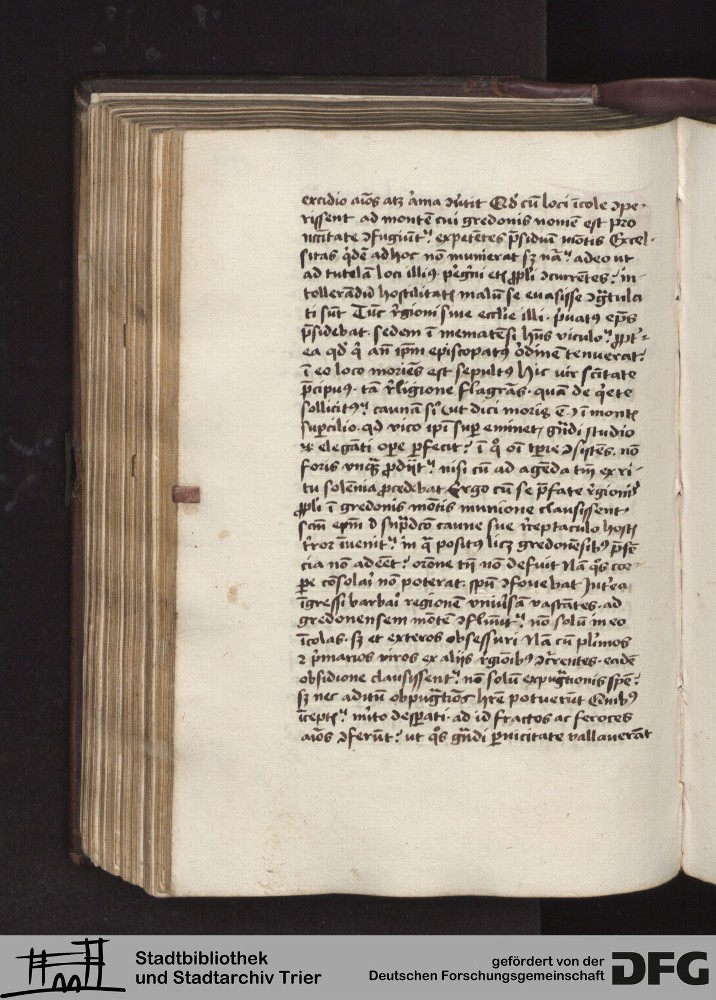 excidio aīos atꝫ arma ꝯūtit Qd' cū loci īcole ꝯpe-
rissent ad montē cui gredonis nomē est pro
ꝯfugiūt expetētes p̄sidiū mōtis Excel-
sitas q̇dē ad hoc nō munierat sꝫ nāᵃ adeo ut
ad tutelā loci illiꝰ p̱eg'ni etꝫ ꝓpli ꝯcurrētes in-
tollerādū hostilitatꝫ malū se euasisse ꝯḡtulа
ti sūt Tūc r̄gioni siue ecclie illi p'uatꝰ ep̄s
p̄sidebat sedem ī mematēsi hn̄s viculo ꝓpt'-
ea qd' q' an̄ ip̄m episcopatꝰ ordinē tenuerāt
ī eo loco moriēs est sepultꝰ Hic vir sc̄itate
p̄cipuꝰ tā r̄ligione flagrās quā de q'ete
sollicitꝰ caunā si' ut dici moris ē ī monte
sup̱cilio qd vico ip̄i sup̱ eminet grādi studio
ꝛ elegāti ope p̱fecit ī q° oī tp̱re ꝯsistēs nō
foris vnq̄ꝫ ꝓdiit nisi cū ad agēda tm̄ ex ri-
tu solēnia ꝓcedebat Ergo cū se p̄fate r̄gionis
ꝓpli ī gredonis mōtis munione clausissent
sc̄m ep̄m d sup̄dc̄o caune sue r̄ceptaculo hostꝫ
t'ror īuenit in q̄ positꝰ licꝫ gredonēsibꝰ p̄sē
cia nō adeēt orōne tn̄ nō defuit Nā q°s cor-
pe cōsolai nō poterat spū ꝯfouebat Int'ea
īgressi barbai regionē vniu'sam vastātes ad
gredonensem mōtē ꝯfluūt nō solū in eo
īcolas sꝫ et exteros obsessuri Nā cū pl'imos
ꝛ p'marios viros ex alijs r̄gionibꝰ ꝯcurentes eadē
obsidione clausissent nō solū expugtionis spē
sꝫ nec aditū obpugtiōis hr̄e potuerūt Quibꝰ
īceptꝫ m'ito desp̱ati ad id fractos ac feroces
aīos ꝯferūt ut q°s grādi p̱nicitate vallauerāt
Stadtbibliothek
und Stadtarchiv Trier
gefördert von der
Deutschen Forschungsgemeinschaft
DFG